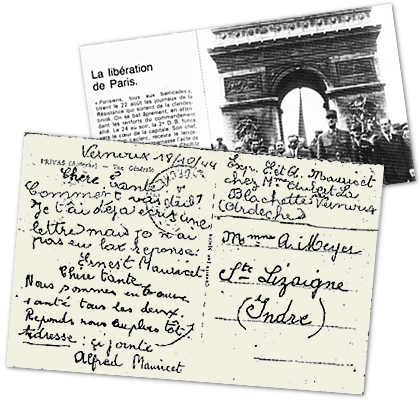 La libération
de Paris.
« Parisiens, tous aux barricades »,
titrent le 22 août les journaux de la
Résistance qui sortent de la clandes-
tinité. On se bat âprement, en atten-
dant les renforts du commandement
allié. Le 24 au soir, la 2e D. B. fonce
vers le cœur de la capitale. Son chef,
Leclerc, recevra le
l'acte de
Vernoux 18/10/44
PRIVAS (Ardèche) - Vue Générale
Chère Tante
Comment vas-tu?
Je t'ai déjà écris une
lettre mais je n'ai
pas eu la réponse.
Ernest Mauricet
Chère tante
Nous sommes en bonne
santé tous les deux.
Réponds nous au plus tôt
Adresse : ci jointe
Alfred Mauricet
Exp. E. et A. Mauricet
chez Mme
Blachette Vernoux
(Ardèche)
Mme A. Meyer
Ste Lizaigne
(Indre)